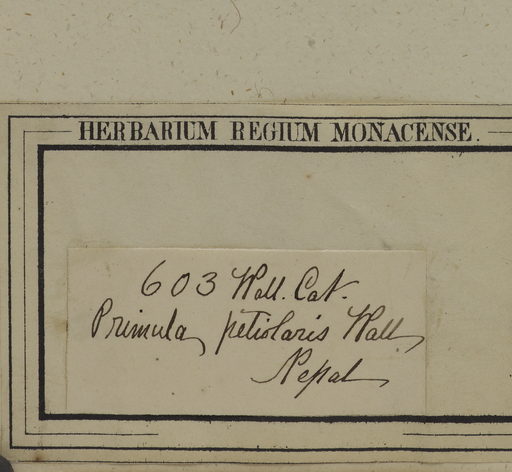 HERBARIUM REGIUM MONACENSE.
603 Wall. Cat.
Primula petiolaris Wall.
Nepal